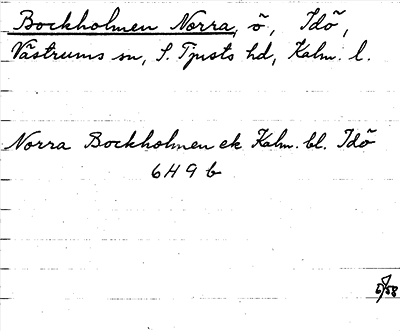 Bockholmen Norra, ö, Idö,
Västrums sn, S. Tjusts hd, Kalm. l.
Norra Bockholmen ek Kalm. bl. Idö
6H9b
5/58